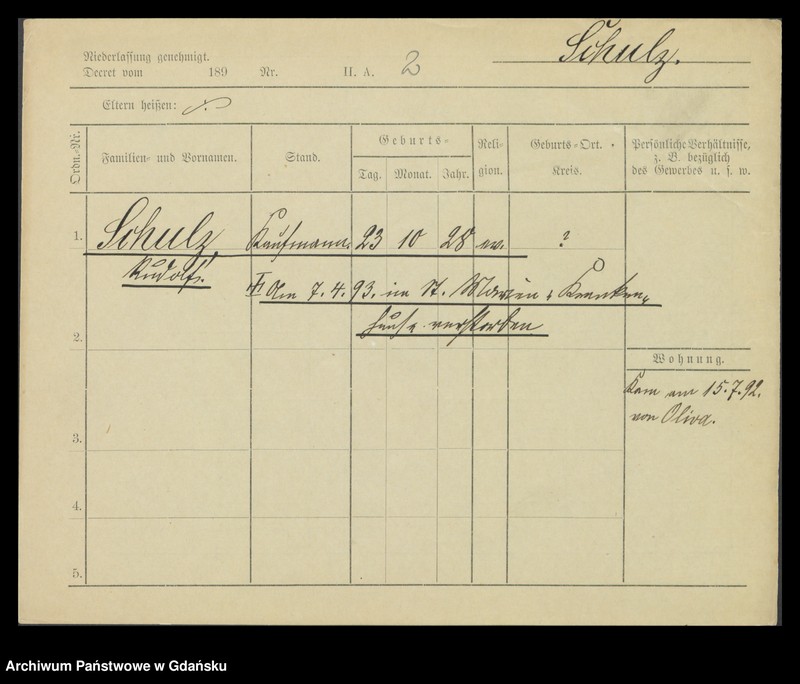 Schulz.
Niederlassung genehmigt.
Decret vom 189 Nr. II. A. 2
Eltern heißen:
Ordn.-Nr. Familien- und Vornamen. Stand. Geburts- Tag. Monat. Jahr. Religion. Geburts-Ort. Kreis. Persönliche Verhältnisse, z. B. bezüglich des Gewerbes u. s. w.
1. Schulz, Kaufmann 23 10 28 ev. ?
Rudolf.
Am 7.4.93. im St. Marien-Kranken-
hause verstorben
2.
Wohnung.
Kam am 15.7.92.
von Oliva.
3.
4.
5.
Archiwum Państwowe w Gdańsku